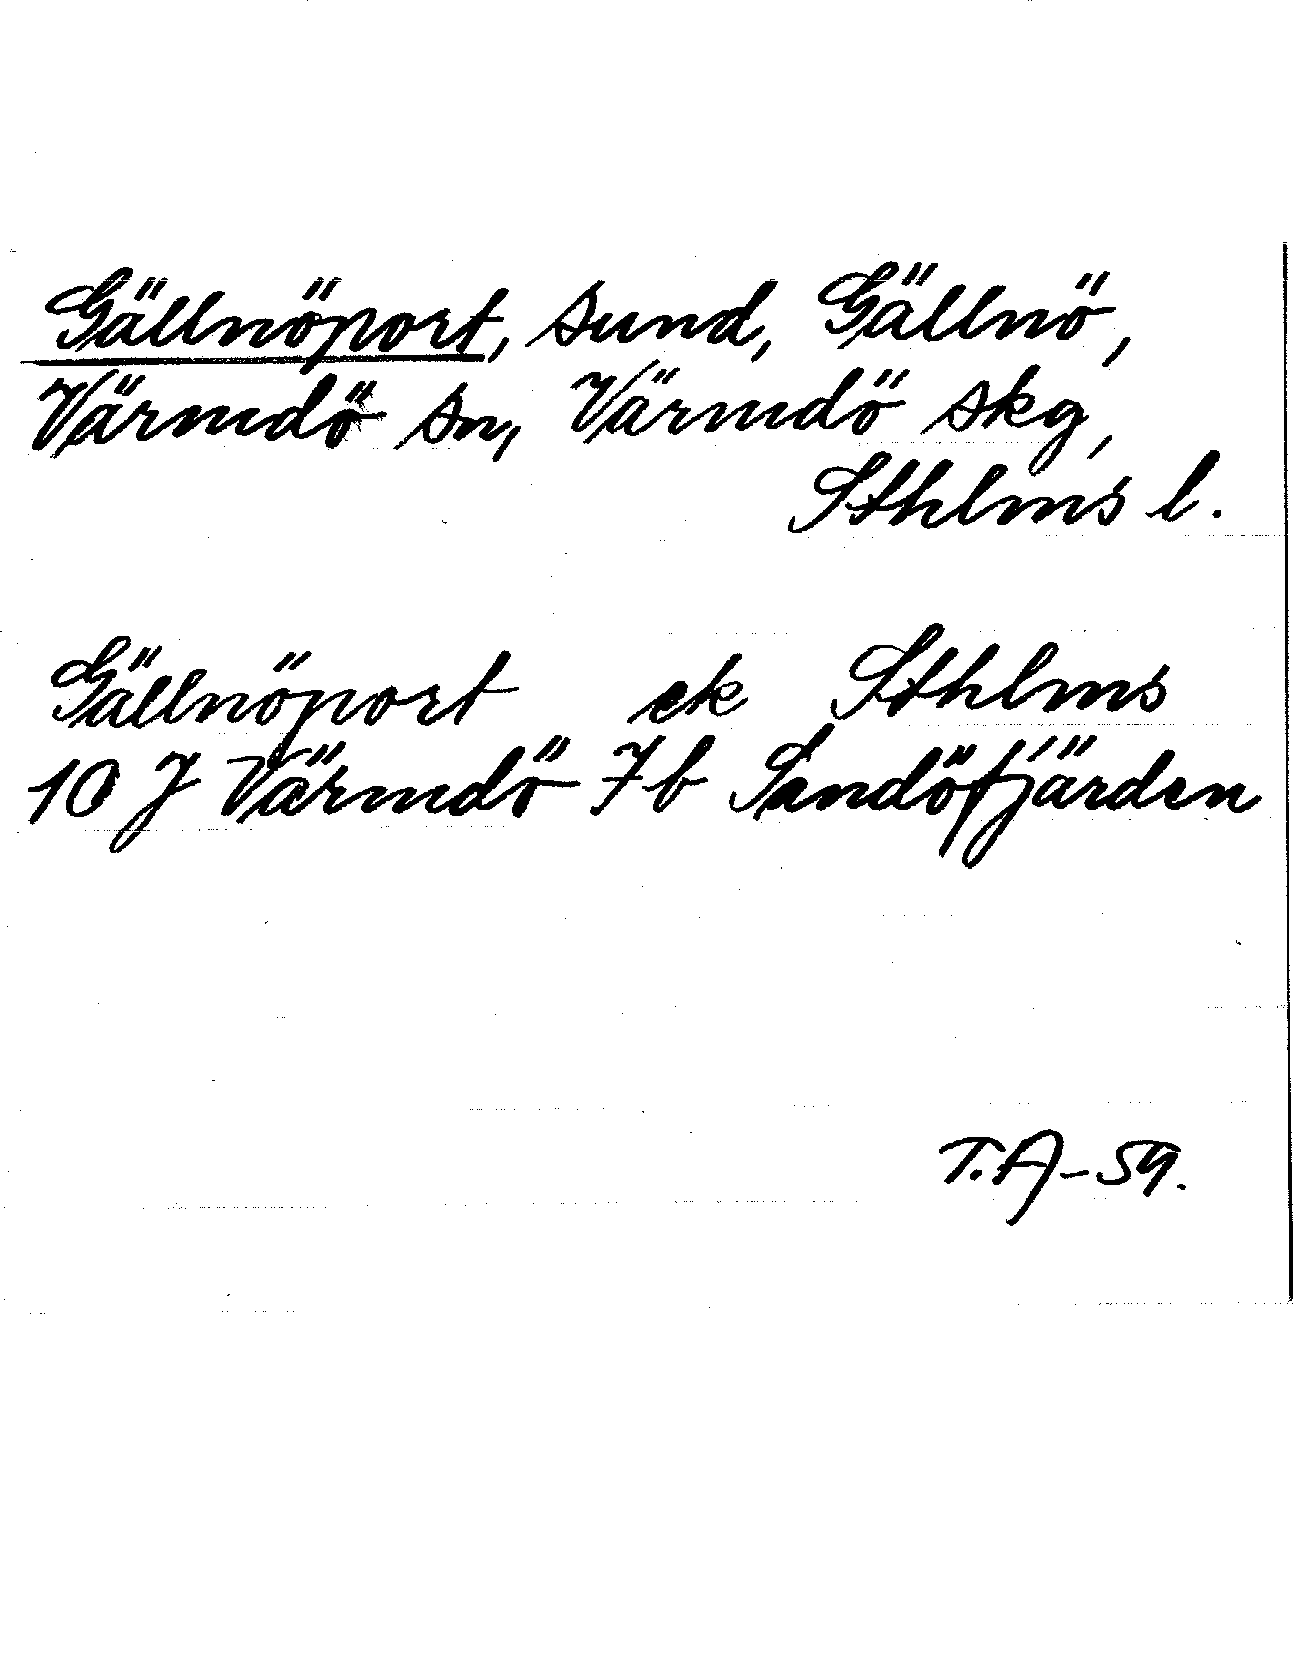 Gällnöport, sund, Gällnö,
Värmdö sn, Värmdö skg,
Sthlms l.
Gällnöport ek Sthlms
10 J Värmdö 7b Sandöfjärden
T.A-59.